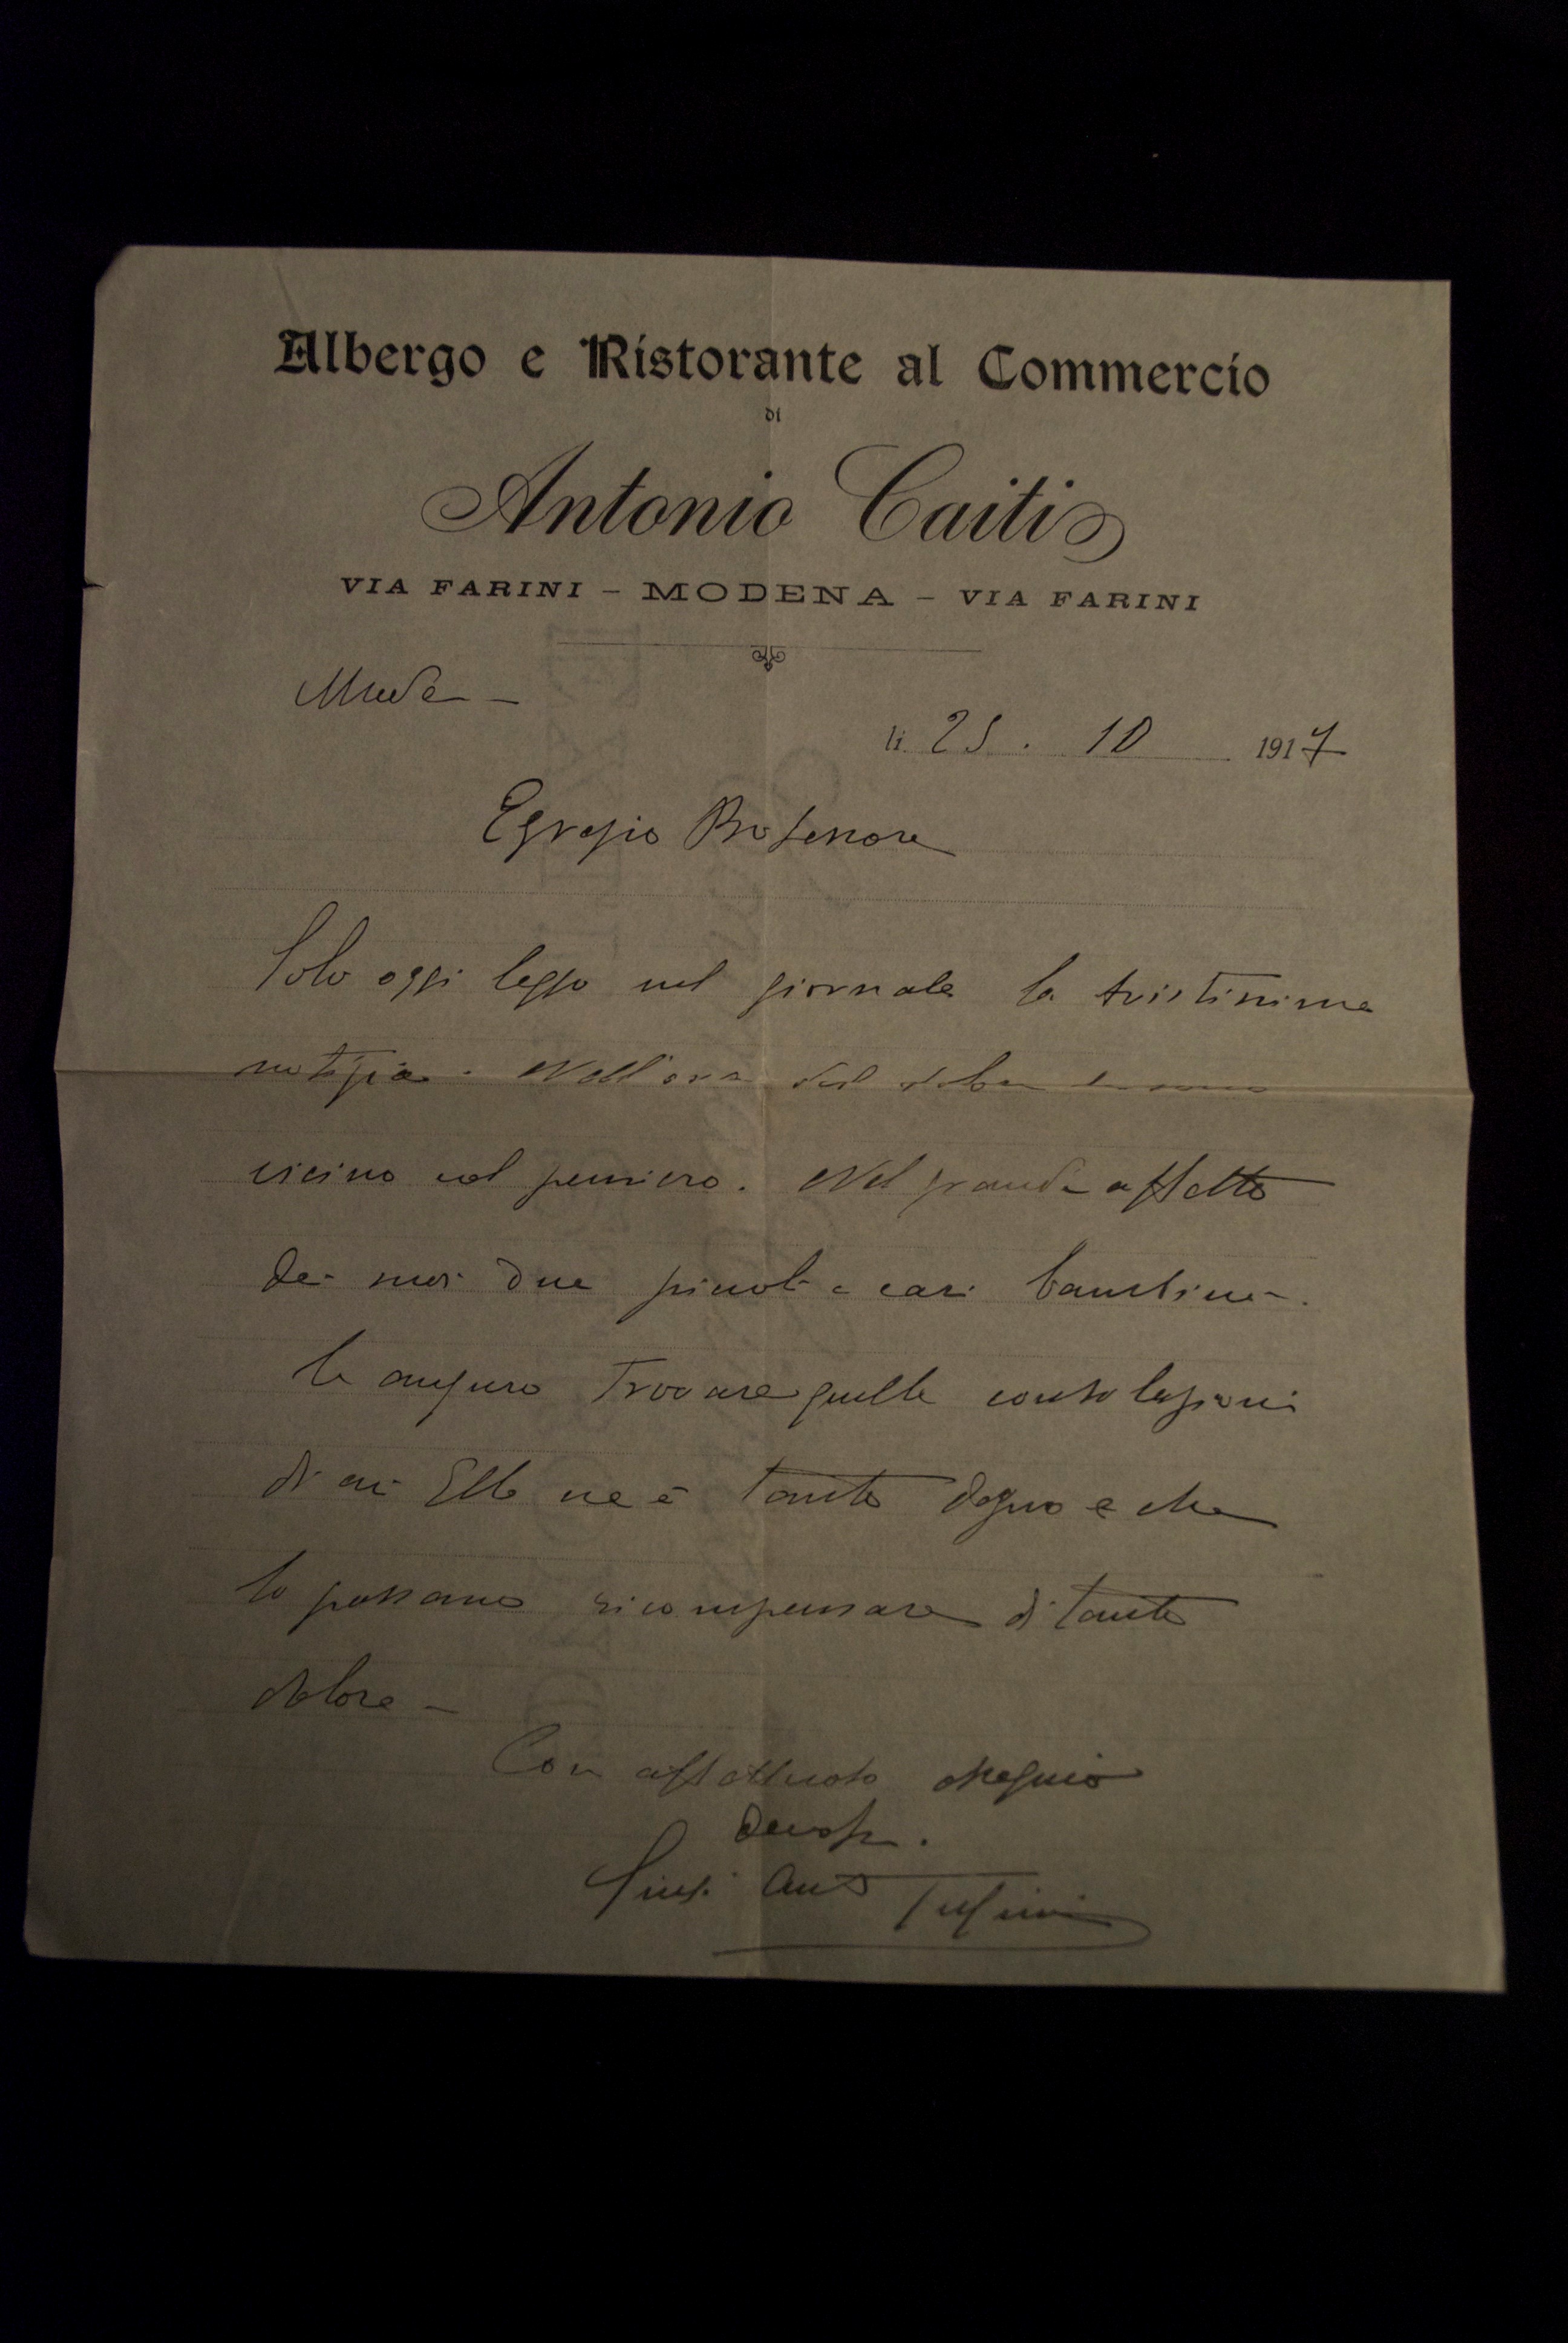 Albergo e Ristorante al Commercio
di
Antonio Caiti
VIA FARINI - MODENA - VIA FARINI
li 25. 10 1917
Egregio Professore
Solo oggi leggo nel giornale la tristissima
notizia. Nell'ora del dolore
vicino col pensiero. Nel grande affetto
dei suoi due piccoli e cari bambini.
le auguro trovare quelle consolazioni
di cui Ella ne è tanto degno e che
lo possano ricompensare di tanto
dolore -
Con affettuoso ossequio
devoto.